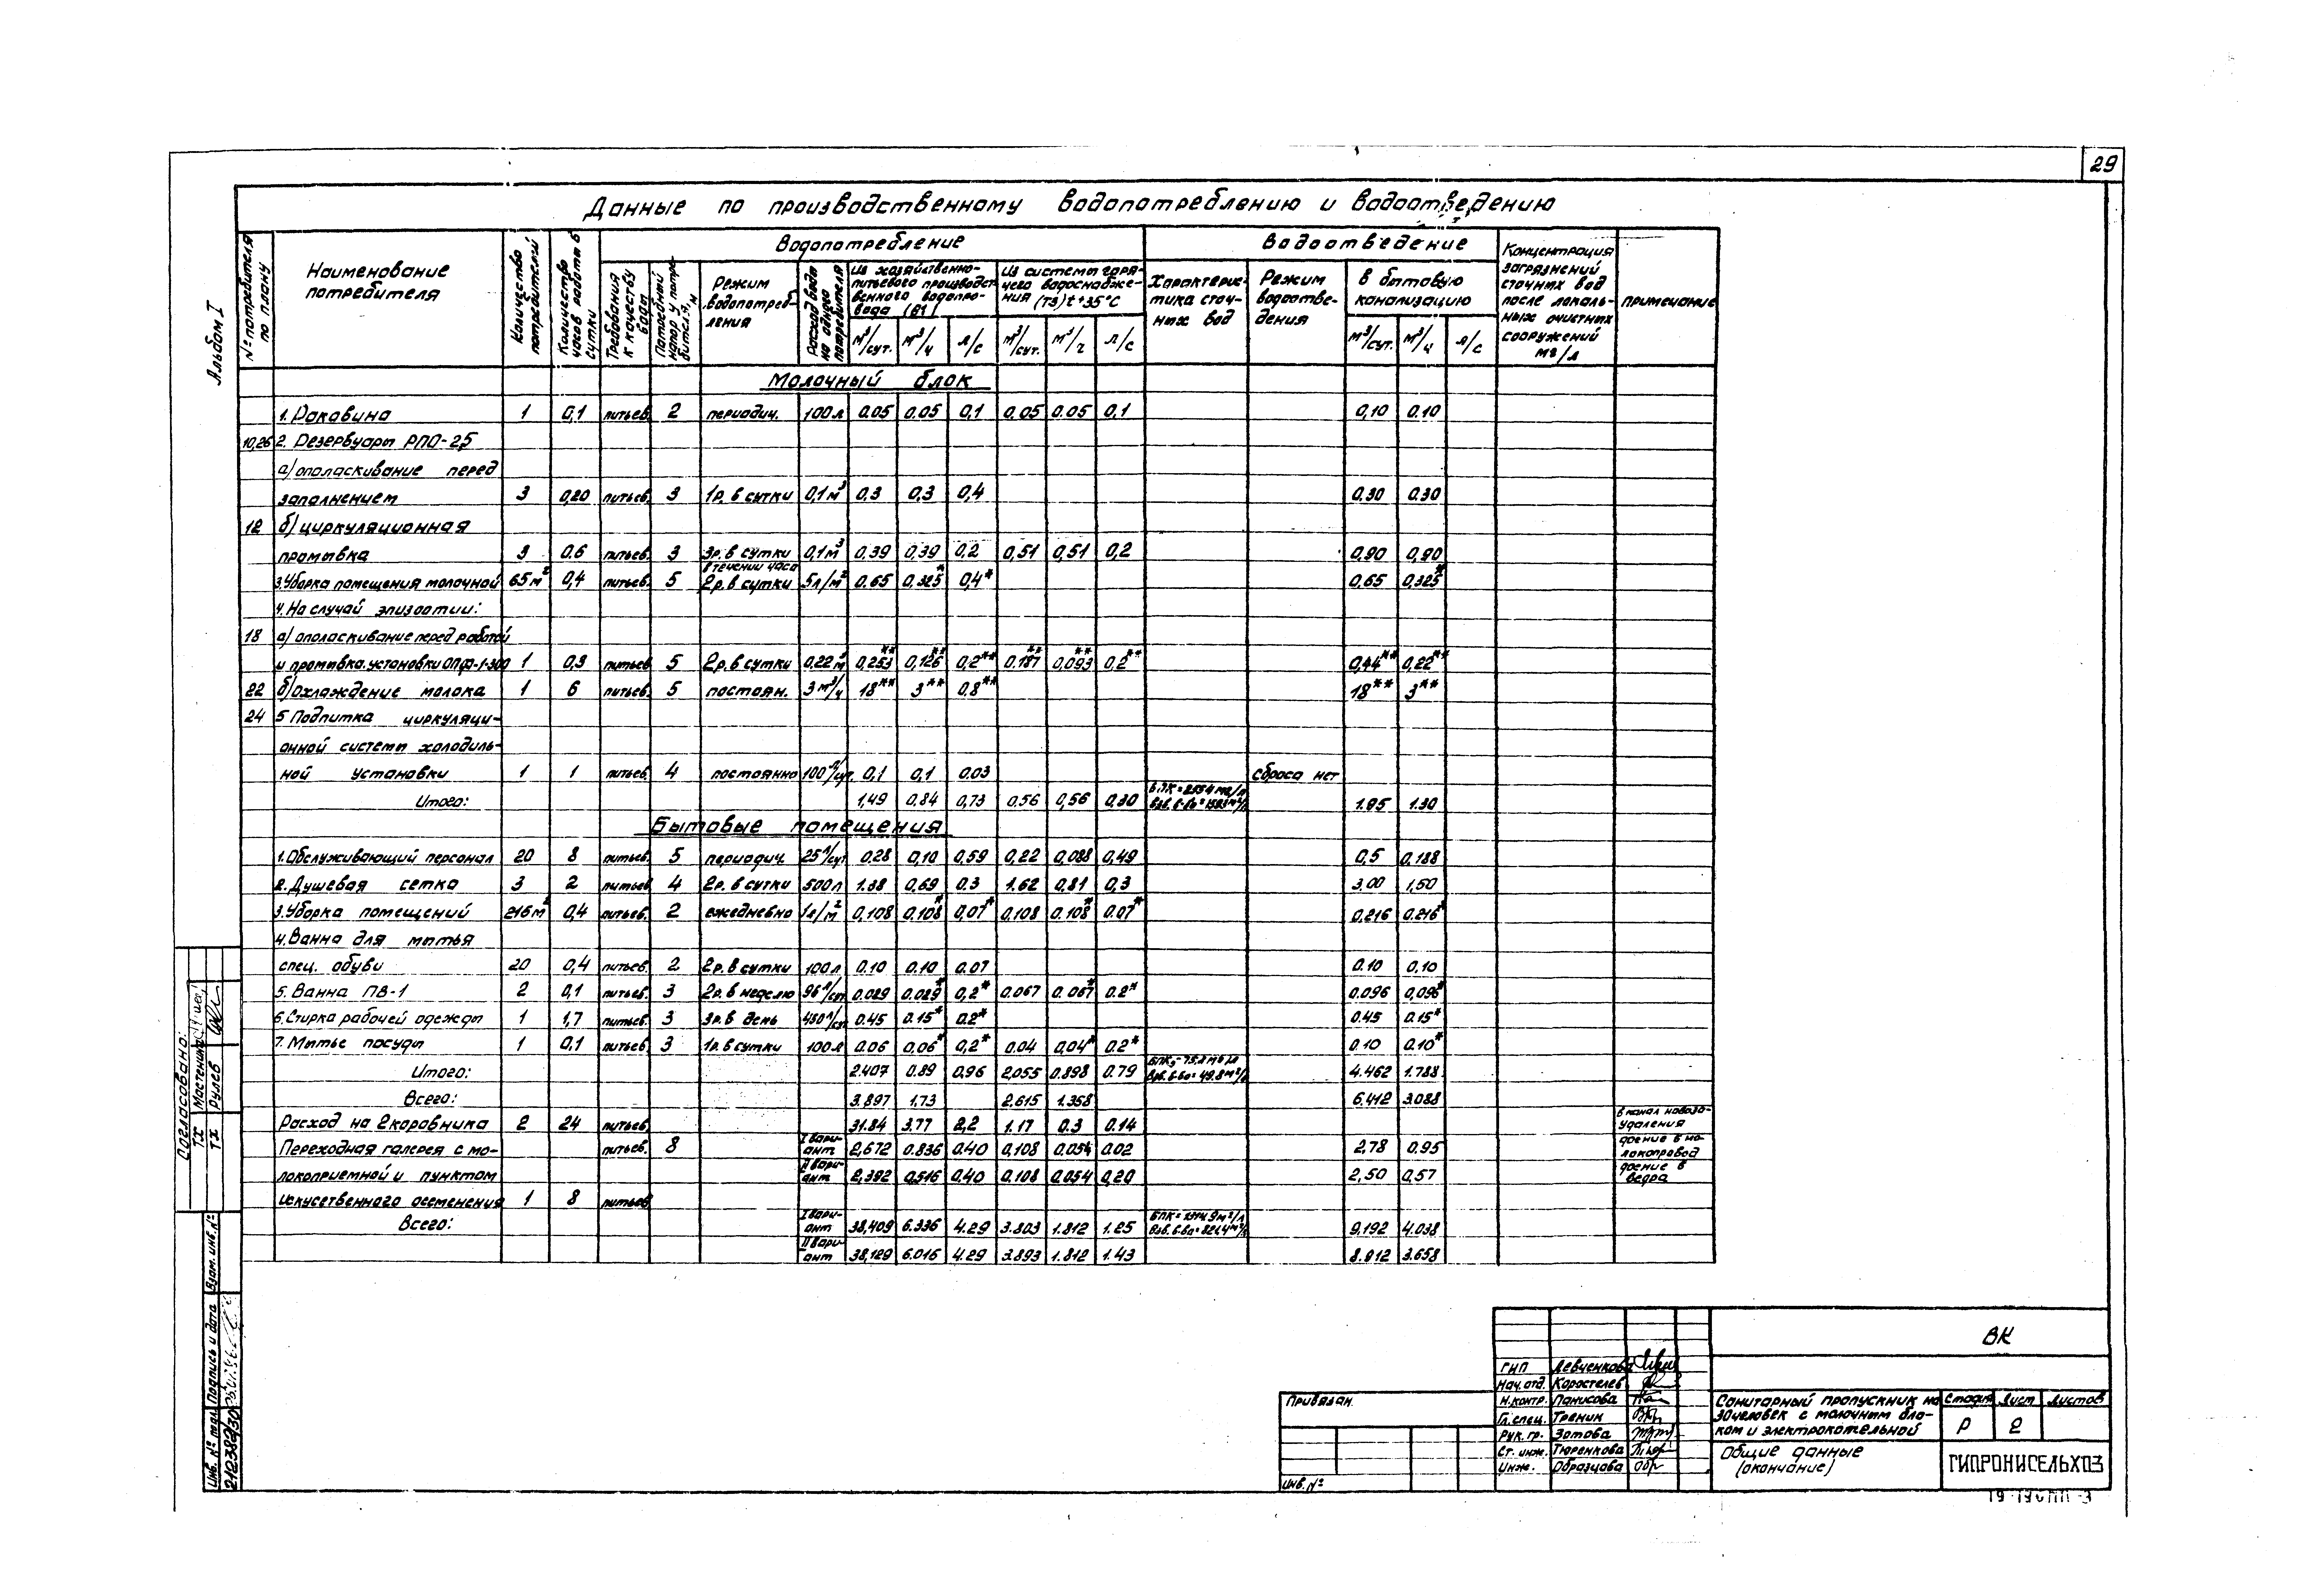 29
Данные по производственному водопотреблению и водоотведению
Альбом I
№ потребителя по плану
Наименование потребителя
Количество потребителей
Количество часов работы в сутки
Водопотребление
Водоотведение
Концентрация загрязнений сточных вод после локальных очистных сооружений мг/л
Примечание
Требования к качеству воды
Потребный напор у потребителя, м
Режим водопотребления
Расход воды на одного потребителя
Из хозяйственно-питьевого производственного водопровода (В1)
Из системы горячего водоснабжения (Т3) t+35°С
Характеристика сточных вод
Режим водоотведения
в бытовую канализацию
м³/сут. м³/ч л/с м³/сут. м³/ч л/с м³/сут. м³/ч л/с
Молочный блок
1. Раковина 1 0,1 питьев. 2 периодич. 100л 0.05 0.05 0,1 0,05 0.05 0,1 0,10 0.10
10,26 2. Резервуары РПО-2,5
а) ополаскивание перед
заполнением 3 0,20 питьев. 3 1р. в сутки 0,1м³ 0,3 0,3 0,4 0,30 0.30
12 б) циркуляционная
промывка 3 0.6 питьев. 3 3р. в сутки 0,1м³ 0,39 0,39 0,2 0,51 0,51 0,2 0,90 0,90
в течении часа
3. Уборка помещения молочной 65м² 0,4 питьев. 5 2р. в сутки 5л/м² 0.65 0.325* 0,4* 0,65 0,325*
4. На случай эпизоотии:
18 а) ополаскивание перед работой
и промывка установки ОПФ-1-300 1 0,3 питьев. 5 2р. в сутки 0,22м³ 0,253** 0,126** 0,2** 0,187 0,093** 0,2** 0,44** 0,22**
22 б) Охлаждение молока 1 6 питьев. 5 постоян. 3 м³/ч 18** 3** 0,8** 18** 3**
24 5 Подпитка циркуляци-
онной системы холодиль-
ной установки 1 1 питьев. 4 постоянно 100 л/сут. 0,1 0,1 0.03 сброса нет
Итого: 1,49 0,84 0,73 0.56 0,56 0,30 1.95 1.30
Бытовые помещения
1. Обслуживающий персонал 20 8 питьев. 5 периодич. 25л/сут 0.28 0,10 0,59 0,22 0,088 0,49 0,5 0,188
2. Душевая сетка 3 2 питьев. 4 2р. в сутки 500л 1.38 0,69 0.3 1.62 0,81 0,3 3,00 1,50
3. Уборка помещений 216м² 0,4 питьев. 2 ежедневно 1л/м² 0,108 0.108* 0,07* 0,108 0.108* 0.07* 0,216 0.216*
4. Ванна для мытья
спец. обуви 20 0,4 питьев. 2 2р. в сутки 100л 0.10 0.10 0.07 0.10 0,10
5. Ванна ПВ-1 2 0,1 питьев. 3 2р. в неделю 96л/сут 0.029 0.029* 0,2* 0.067 0.067* 0.2* 0.096 0,096*
6. Стирка рабочей одежды 1 1,7 питьев. 3 3р. в день 450л/сут 0.45 0.15* 0.2* 0.45 0.15*
7. Мытье посуды 1 0,1 питьев. 3 1р. в сутки 100л 0.06 0,06* 0,2* 0.04 0,04* 0.2* 0.10 0.10*
Итого: 2.407 0.89 0,96 2,055 0.898 0.79 4.462 1.788
Всего: 3.897 1.73 2.615 1.358 6.412 3.088
Расход на 2 коровника 2 24 питьев. 31.84 3.77 2,2 1.17 0.3 0.14 в канал навозоудаления
Переходная галерея с мо- питьев. 8 I вариант 2,672 0.836 0.40 0,108 0.054 0.02 2,78 0.95 доение в молокопровод
локоприемной и пунктом II вариант 2,392 0,516 0,40 0.108 0.054 0,20 2,50 0,57 доение в ведра
искусственного осеменения 1 8 питьев.
Всего: I вариант 38,409 6.336 4.29 3.803 1.812 1.25 9.192 4.038
II вариант 38,129 6.016 4.29 3.893 1.812 1.43 8.912 3.658
Согласовано:
ТХ
ТХ Рулев
Взам. инв. №
Подпись и дата
Инв. № подл.
Привязан
Инв. №
ВК
ГИП Левченкова
Нач. отд. Коростелев
Н. контр. Панисова
Гл. спец. Тренин
Рук. гр. Зотова
Ст. инж. Тюренкова
Инж. Образцова
Санитарный пропускник на
30 человек с молочным бло-
ком и электрокотельной
Стадия Лист Листов
Р 2
Общие данные
(окончание)
ГИПРОНИСЕЛЬХОЗ